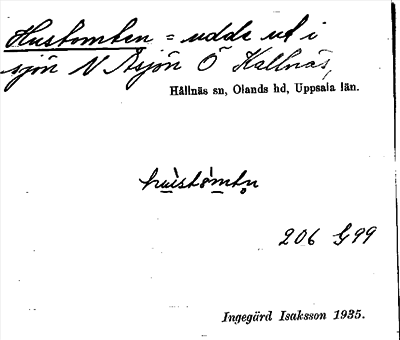 Hustomten = udde ut i
sjön N Åsjön Ö Kallnäs,
Hållnäs sn, Olands hd, Uppsala län.
206 G99
Ingegärd Isaksson 1935.